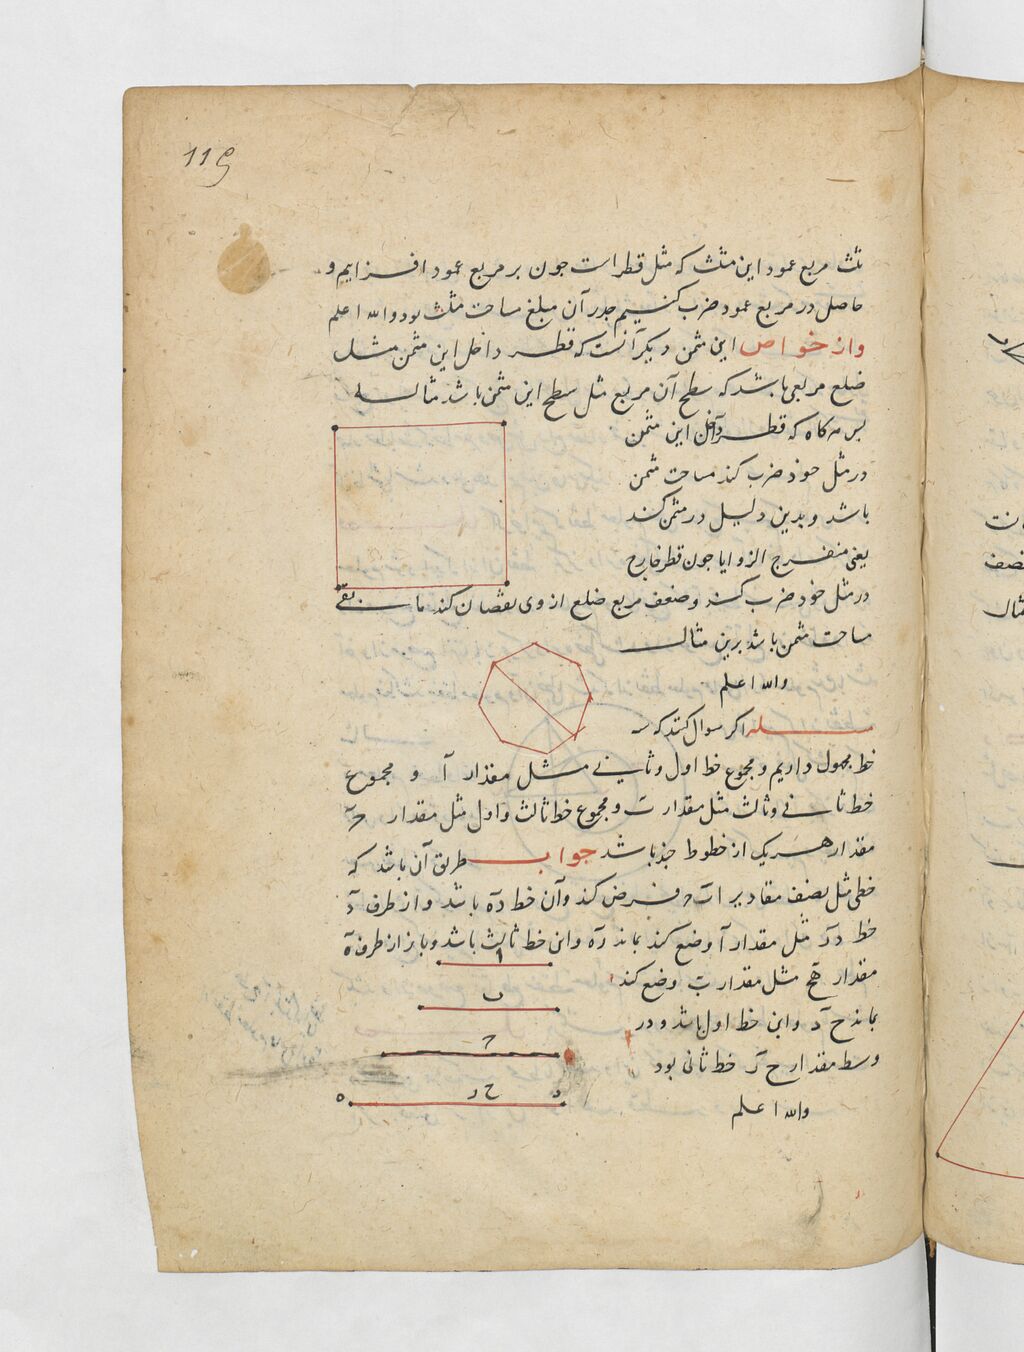 119
ثلث مربع عمود این مثلث که مثل قطر است جون بر مربع عمود افزاییم و
حاصل در مربع عمود ضرب کنیم جدر آن مبلغ ساحت مثلث بود والله اعلم
واز خواص این مثمن دیگر آنست که قطر داخل این مثمن مثل
ضلع مربعی باشد که سطح آن مربع مثل سطح این مثمن باشد مثاله
بس هرکاه که قطر داخل این مثمن
در مثل خود ضرب کند مساحت مثمن
باشد و بدین دلیل در مثمن کند
یعنی منفرج الزوایا جون قطر خارج
در مثل خود ضرب کند و ضعف مربع ضلع از وی نقصان کند ما بقی
مساحت مثمن باشد برین مثال
والله اعلم
مسله اکر سوال کنند که سه
خط مجهول داریم و مجموع خط اول و ثانی مثل مقدار آ و مجموع
خط ثانی و ثالث مثل مقدار ب و مجموع خط ثالث و اول مثل مقدار ح
مقدار هر یک از خطوط جند باشد جواب طریق آن باشد که
خطی مثل نصف مقادیر ا ب ح فرض کند وآن خط ده باشد و از طرف د
خط در مثل مقدار آ وضع کند بماند ره واین خط ثالث باشد و باز از طرف ه
مقدار هح مثل مقدار ب وضع کند
بماند ح د واین خط اول باشد و در
وسط مقدار ح ر خط ثانی بود
والله اعلم
ا
ب
ح
ه ر ح د